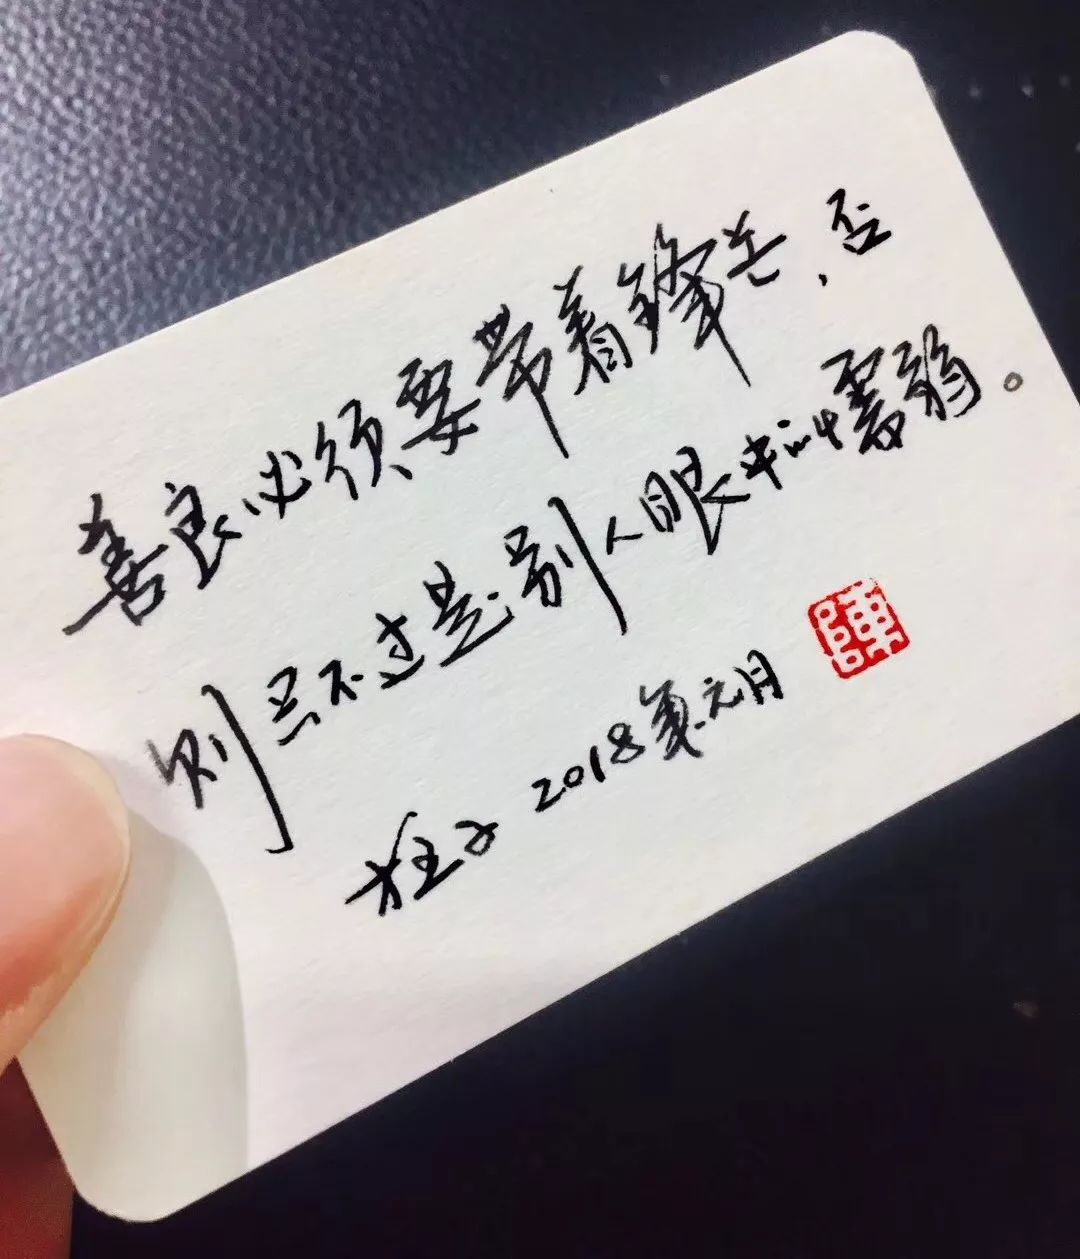 善良必须要带着锋芒，否
则只不过是别人眼中的懦弱。
狂子 2018夏元月
陳